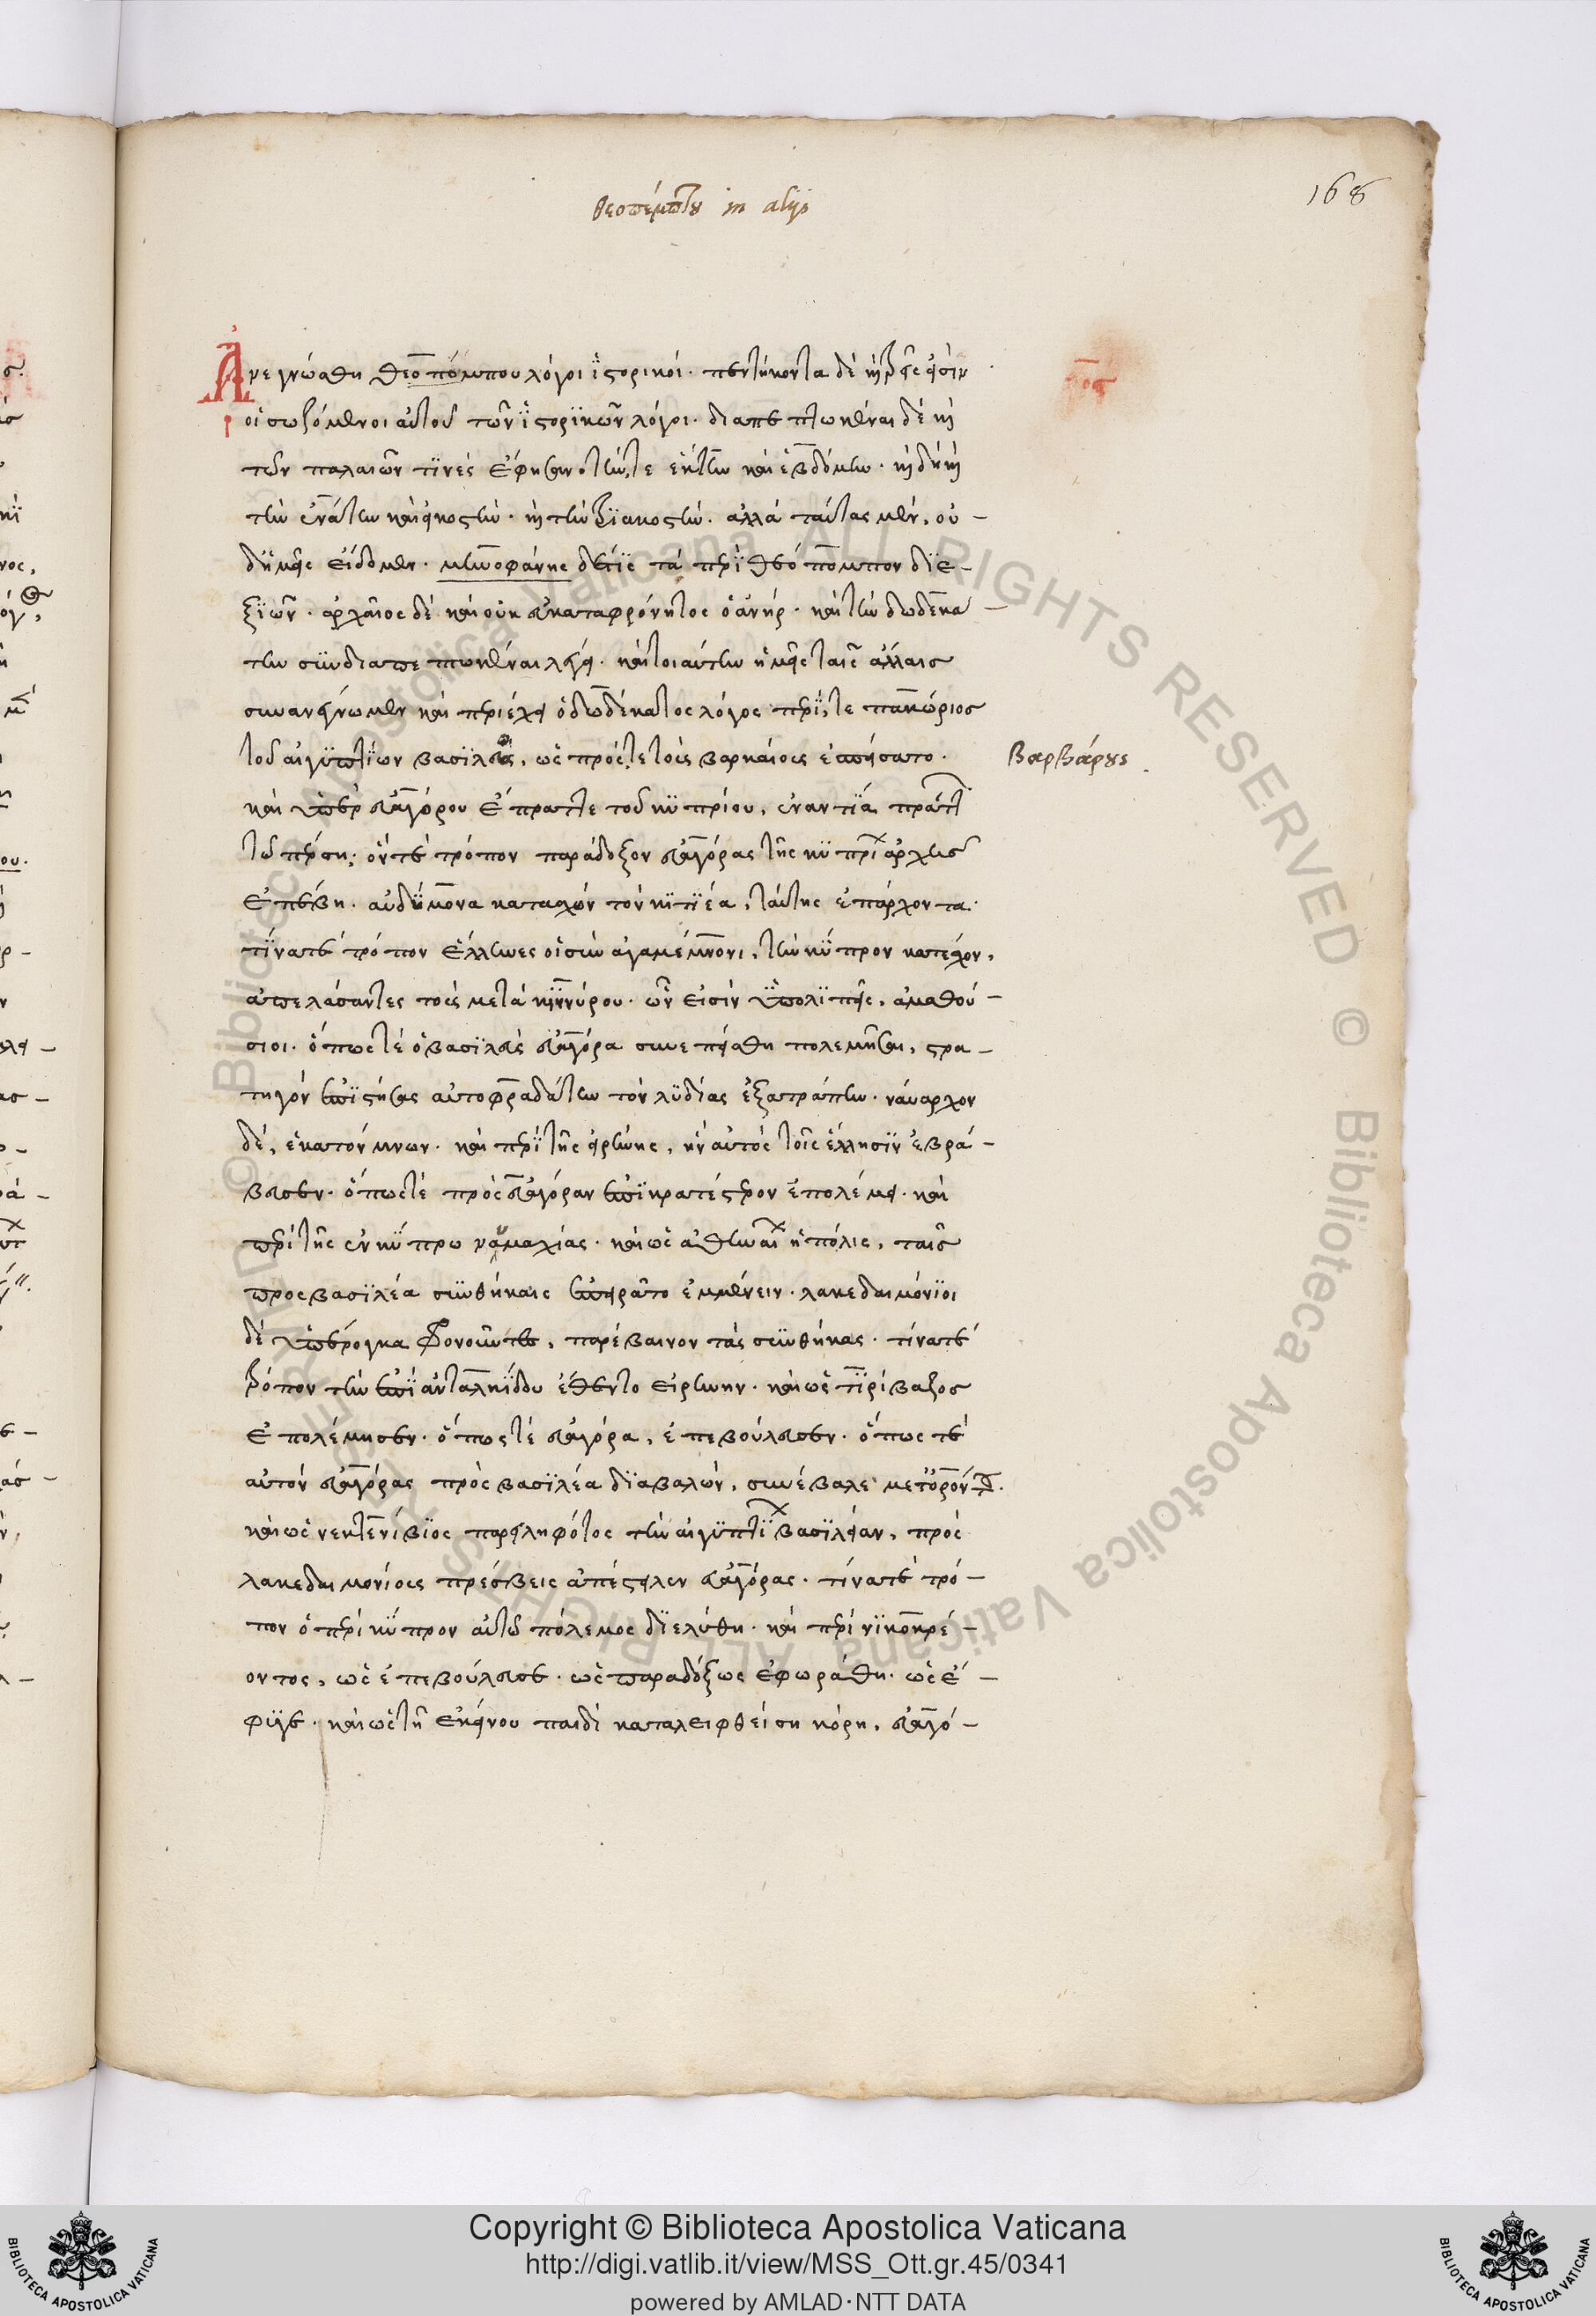 θεοπέμπτου in alijs
168
Ἀνεγνώσθη θεοπόμπου λόγοι ἱστορικοί. πεντήκοντα δὲ καὶ τρεῖς εἰσὶν
οἱ σωζόμενοι αὐτοῦ τῶν ἱστορικῶν λόγοι. διαπεπτωκέναι δὲ καὶ
τῶν παλαιῶν τινὲς ἔφησαν. τήν τε ἕκτην καὶ ἑβδόμην. καὶ δὴ καὶ
τὴν ἐνάτην καὶ εἰκοστὴν. καὶ τὴν τριακοστήν. ἀλλὰ ταύτας μὲν, οὐ –
δ' ἡμεῖς εἴδομεν. μηνοφάνης δέ τις τὰ περὶ θεόπομπον διε –
ξιὼν. ἀρχαῖος δὲ καὶ οὐκ εὐκαταφρόνητος ὁ ἀνήρ. καὶ τὴν δωδεκά –
την συνδιαπεπτωκέναι λέγει. καίτοι αὐτὴν ἡμεῖς ταῖς ἄλλαις
συνανέγνωμεν καὶ περιέχει ὁ δωδέκατος λόγος περί, τε πακώριος
τοῦ αἰγυπτίων βασιλέως, ὡς πρός τε τοὺς βαρκαίους ἐσπείσατο.
βαρβάρους
καὶ ὑπὲρ εὐαγόρου ἔπραττε τοῦ κυπρίου, ἐναντία πράττων
τῶ πέρση; ὅν τε τρόπον παράδοξον εὐαγόρας τῆς κυπρίων ἀρχῆς
ἐπέβη. αὐδήμονα κατασχών τὸν κιτιέα, ταύτης ἐπάρχοντα.
τίνα τε τρόπον ἕλληνες οἱ σὺν ἀγαμέμνονι, τὴν κύπρον κατέσχον,
ἀπελάσαντες τοὺς μετὰ κιννύρου. ὧν εἰσὶν ὑπολιπεῖς, ἀμαθού –
σιοι. ὅπως τὲ ὁ βασιλεὺς εὐαγόρα συνεπείσθη πολεμῆσαι, στρα –
τηγὸν ἐπιστήσας αὐτοφραδάτην τὸν λυδίας ἐξατράπην. ναύαρχον
δὲ, ἑκατόμνων. καὶ περὶ τῆς εἰρήνης, ἣν αὐτὸς τοῖς ἕλλησιν ἐβρά –
βευσεν. ὅπως τὲ πρὸς εὐαγόραν ἐπικρατέστερον ἐπολέμει. καὶ
περὶ τῆς ἐν κύπρω ναυμαχίας. καὶ ὡς ἀθηναίων ἡ πόλις, ταῖς
προς βασιλέα συνθήκαις ἐπειρᾶτο ἐμμένειν. λακεδαιμόνιοι
δὲ ὑπέρογκα φρονοῦντες, παρέβαινον τὰς συνθήκας. τίνα τε
τρόπον τὴν ἐπὶ ἀνταλκίδου ἔθεντο εἰρήνην. καὶ ὡς τιρίβαζος
ἐπολέμησεν. ὅπως τὲ εὐαγόρα, ἐπεβούλευσεν. ὅπως τε
αὐτὸν εὐαγόρας πρὸς βασιλέα διαβαλὼν, συνέβαλε μετ' ὀρόντου.
καὶ ὡς νεκτενίβιος παρειληφότος τὴν αἰγυπτίων βασιλείαν, πρὸς
λακεδαιμονίους πρέσβεις ἀπέστειλεν εὐαγόρας. τίνα τε τρό –
πον ὁ περὶ κύπρον αὐτῶ πόλεμος διελύθη. καὶ περὶ νικοκρέ –
οντος, ὡς ἐπεβούλευσε. ὡς παραδόξως ἐφωράθη. ὡς ἔ –
φυγε. καὶ ὡς τῆ ἐκείνου παιδὶ καταλειφθείση κόρη, εὐαγό –
Copyright © Biblioteca Apostolica Vaticana
http://digi.vatlib.it/view/MSS_Ott.gr.45/0341
powered by AMLAD·NTT DATA